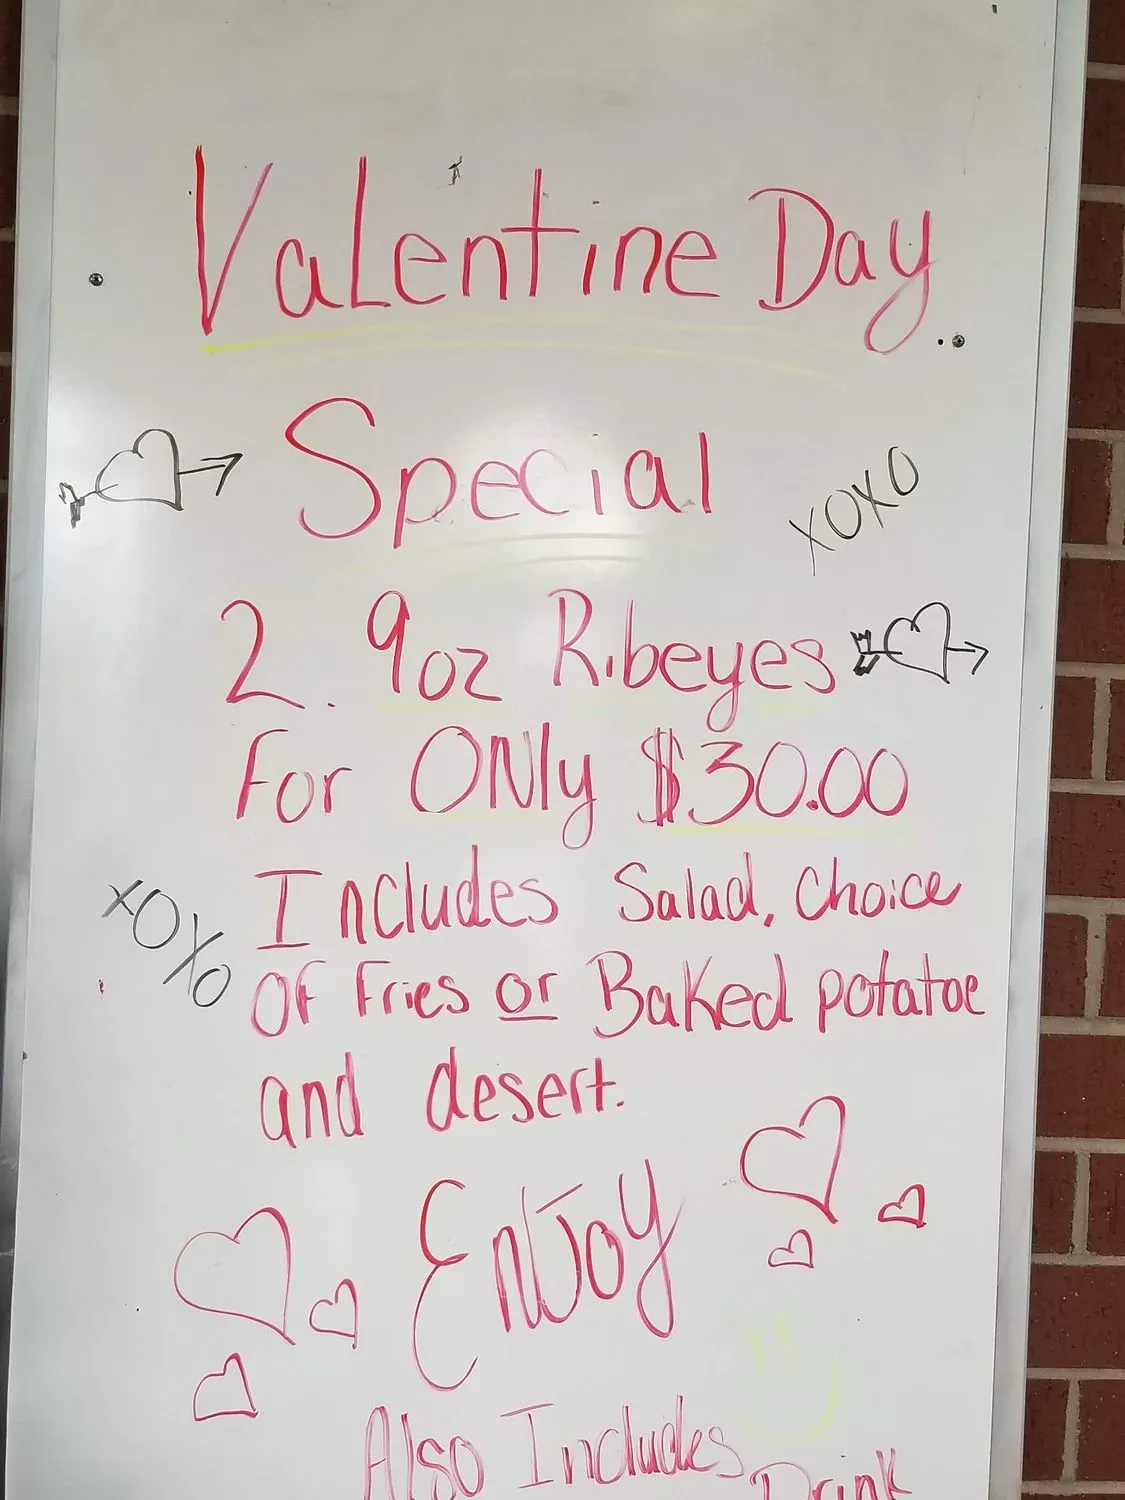 Valentine Day
Special
XOXO
2. 9oz Ribeyes
For ONly $30.00
XOXO
Includes Salad, Choice
OF Fries or Baked potatoe
and desert.
EnJoy
Also Includes
Drink